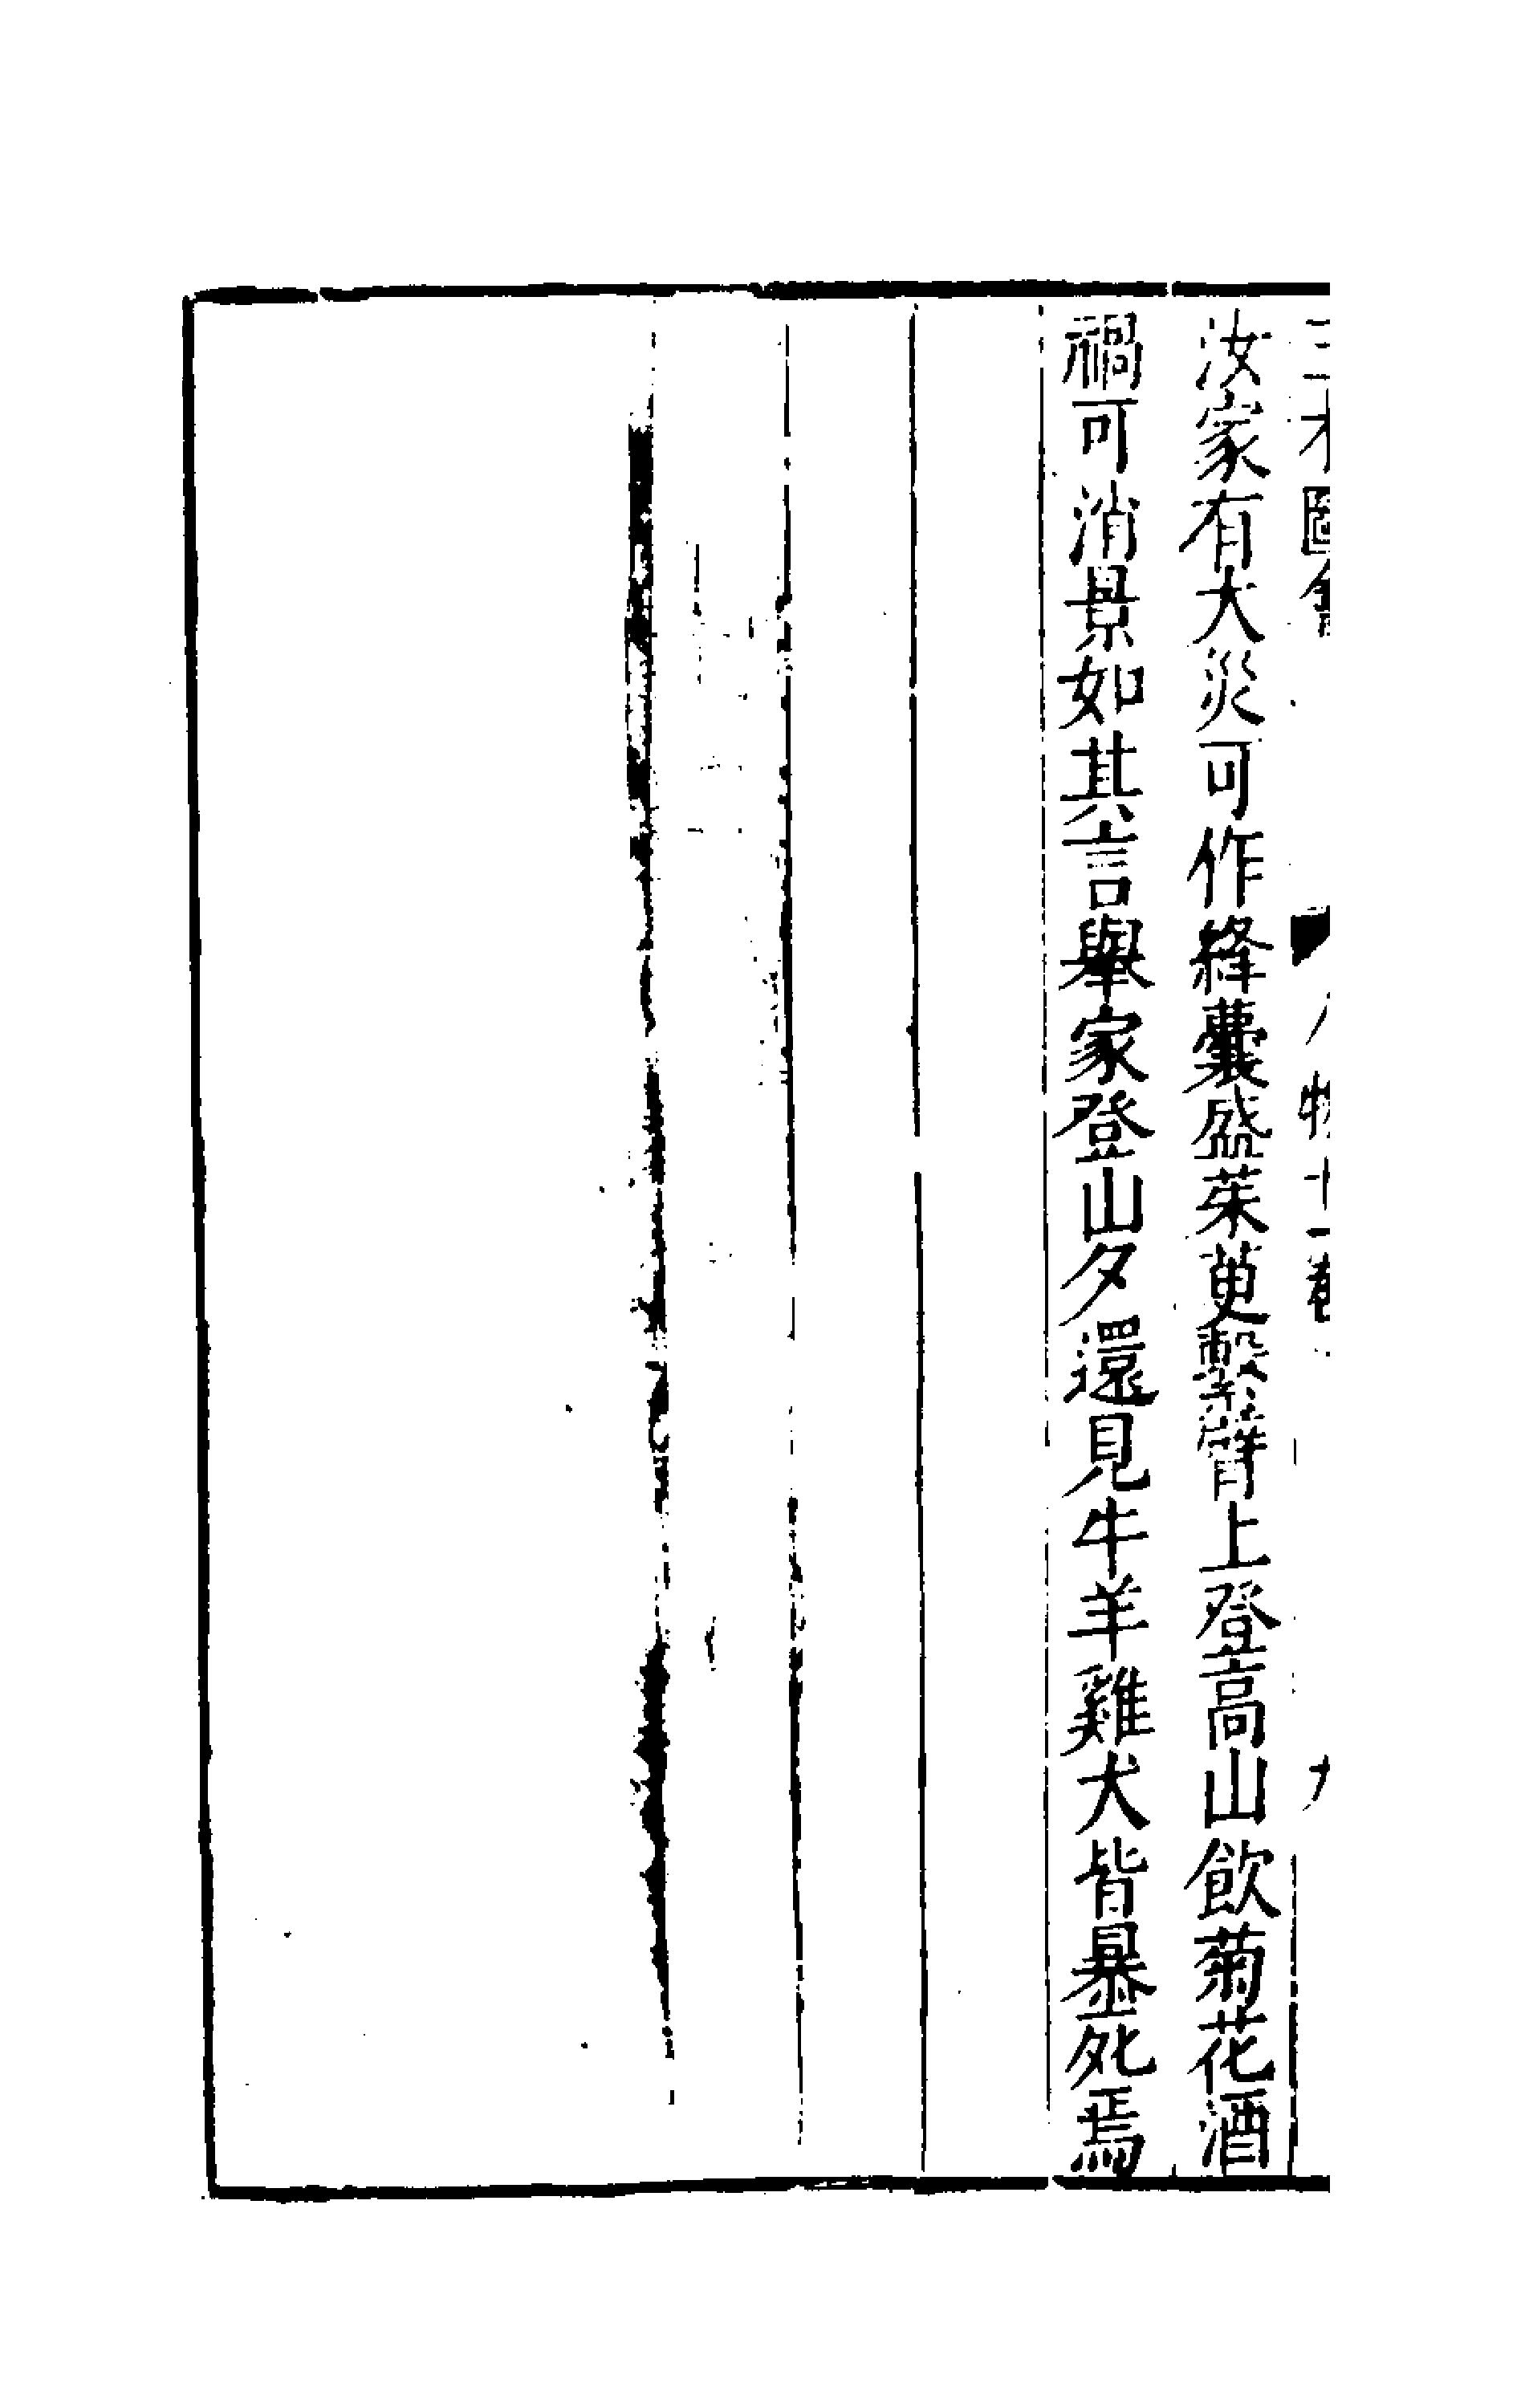 三才圖會 人物十一卷 九
汝家有大災可作絳囊盛茱萸繫臂上登高山飲菊花酒
禍可消景如其言舉家登山夕還見牛羊雞犬皆暴死焉